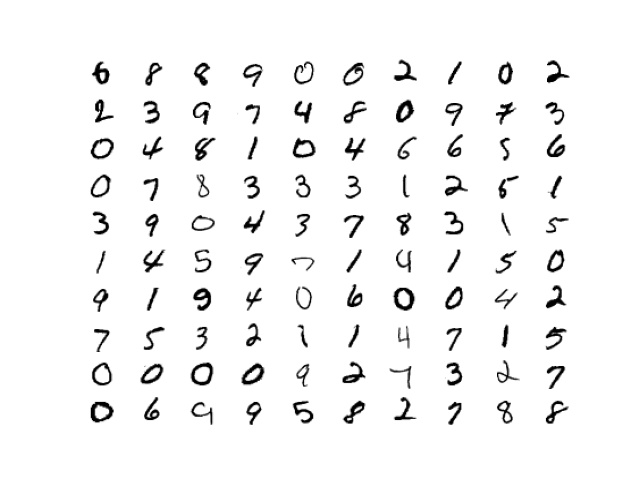 6 8 8 9 0 0 2 1 0 2
2 3 9 7 4 8 0 9 7 3
0 4 8 1 0 4 6 6 5 6
0 7 8 3 3 3 1 2 5 1
3 9 0 4 3 7 8 3 1 5
1 4 5 9 7 1 4 1 5 0
9 1 9 4 0 6 0 0 4 2
7 5 3 2 1 1 4 7 1 5
0 0 0 0 9 2 7 3 2 7
0 6 9 9 5 8 2 7 8 8